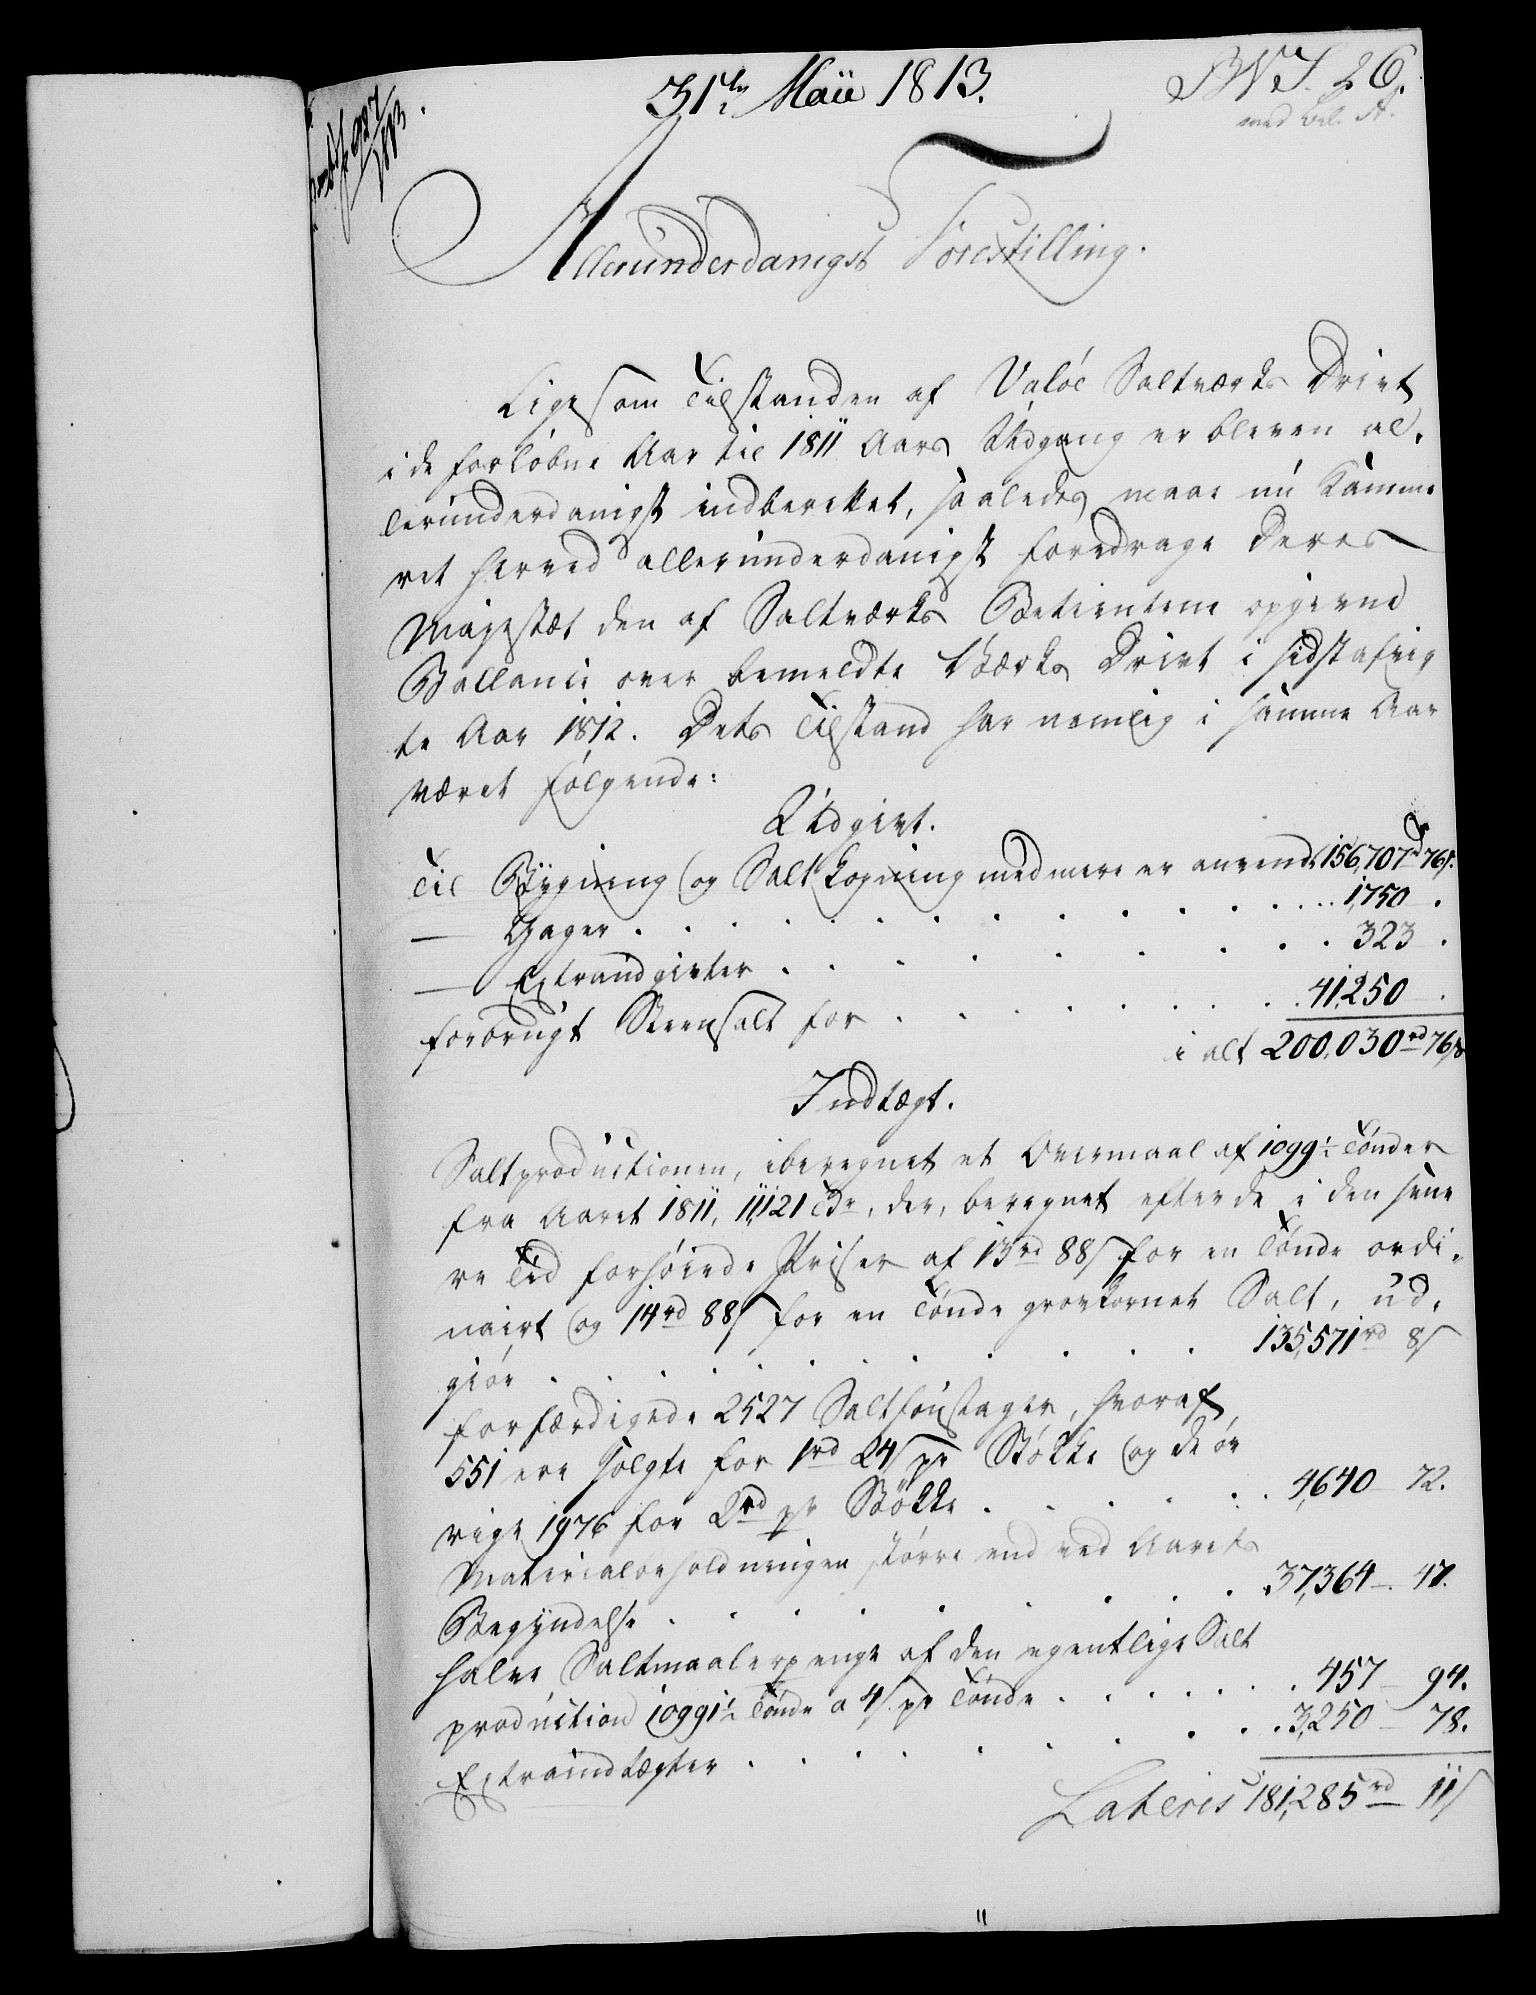 31te Maii 1813.
BVS. 26.
med Bil. A.
987
1813.
Allerunderdanigst Forestilling.
Ligesom Tilstanden af Valöe Saltværks Drivt
i de forløbne Aar til 1811 Aars Udgang er bleven al-
lerunderdanigst indberettet, saaledes maae nu Kamme
ret herved allerunderdanigst foredrage Deres
Majestæt den af Saltværks Betienterne opgivne
Ballance over bemeldte Værks Drivt i sidstafvig
te Aar 1812. Dets Tilstand har nemlig i samme Aar
været følgende:
Udgivt.
Til Bygning og Saltkogning med mere er anvendt 156,707rd 76s.
— Gager . . . 1,750 .
— Extraudgivter . . . 323 .
forbrugt Steensalt for . . . 41,250 .
i alt 200,030rd 76s
Indtægt.
Saltproductionen, iberegnet et Overmaal af 1099½ Tønder
fra Aaret 1811, 11,121 Tdr, der, beregnet efter de i den sene
re Tid forhøiede Priser af 13rd 88s for en Tønde ordi-
nairt og 14rd 88s for en Tønde grovkornet Salt, ud-
giør . . . 135,571rd 8s
forfærdigede 2527 Saltfoustager, hvoraf
551 ere solgte for 1rd 24s pr Støkke og de øv
rige 1976 for 2rd pr Støkke . . . 4,640 — 72.
Materialbeholdningen større end ved Aarets
Begyndelse . . . 37,364 — 47.
halve Saltmaalerpenge af den egentlige Salt
production 10991½ Tønde a 4s pr Tønde . . . 457 — 94.
Extraindtægter . . . 3,250 — 78.
Lateris 181,285rd 11s